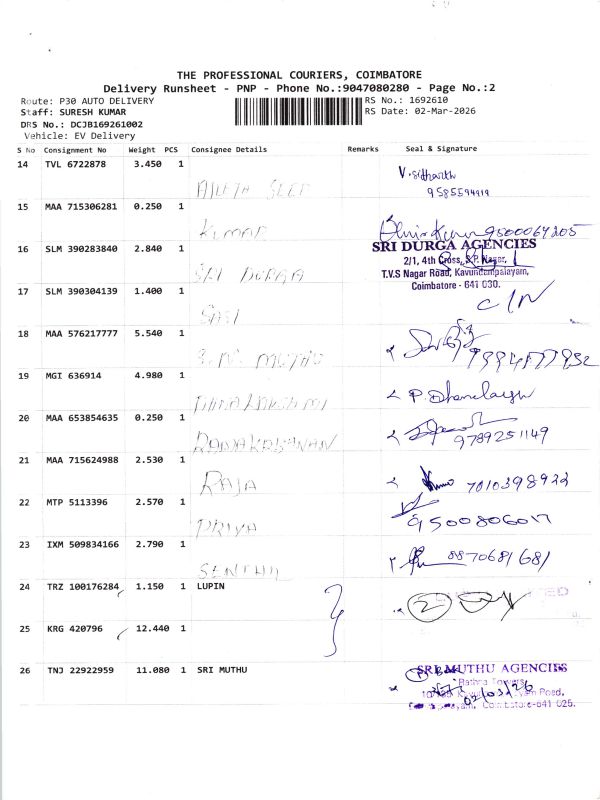 THE PROFESSIONAL COURIERS, COIMBATORE
Delivery Runsheet - PNP - Phone No.:9047080280 - Page No.:2
Route: P30 AUTO DELIVERY RS No.: 1692610
Staff: SURESH KUMAR RS Date: 02-Mar-2026
DRS No.: DCJB169261002
Vehicle: EV Delivery
S No Consignment No Weight PCS Consignee Details Remarks Seal & Signature
14 TVL 6722878 3.450 1
V. Siddharth
9585594919
15 MAA 715306281 0.250 1
KUMAR
9500064205
16 SLM 390283840 2.840 1
SRI DURGA
SRI DURGA AGENCIES
2/1, 4th Cross, S.P. Nagar,
T.V.S Nagar Road, Kavundampalayam,
Coimbatore - 641 030.
17 SLM 390304139 1.400 1
SASI
C/N
18 MAA 576217777 5.540 1
MUTHU
19 MGI 636914 4.980 1
DHANALAKSHMI
P. Dhanalaxmi
20 MAA 653854635 0.250 1
RAMAKRISHNAN
9789251149
21 MAA 715624988 2.530 1
RAJA
7010398922
22 MTP 5113396 2.570 1
PRIYA
9500806017
23 IXM 509834166 2.790 1
SENTHIL
8870681681
24 TRZ 100176284 1.150 1 LUPIN
2
25 KRG 420796 12.440 1
26 TNJ 22922959 11.080 1 SRI MUTHU
SRI MUTHU AGENCIES
Rathna Towers
02/03/26
Coimbatore-641 025.